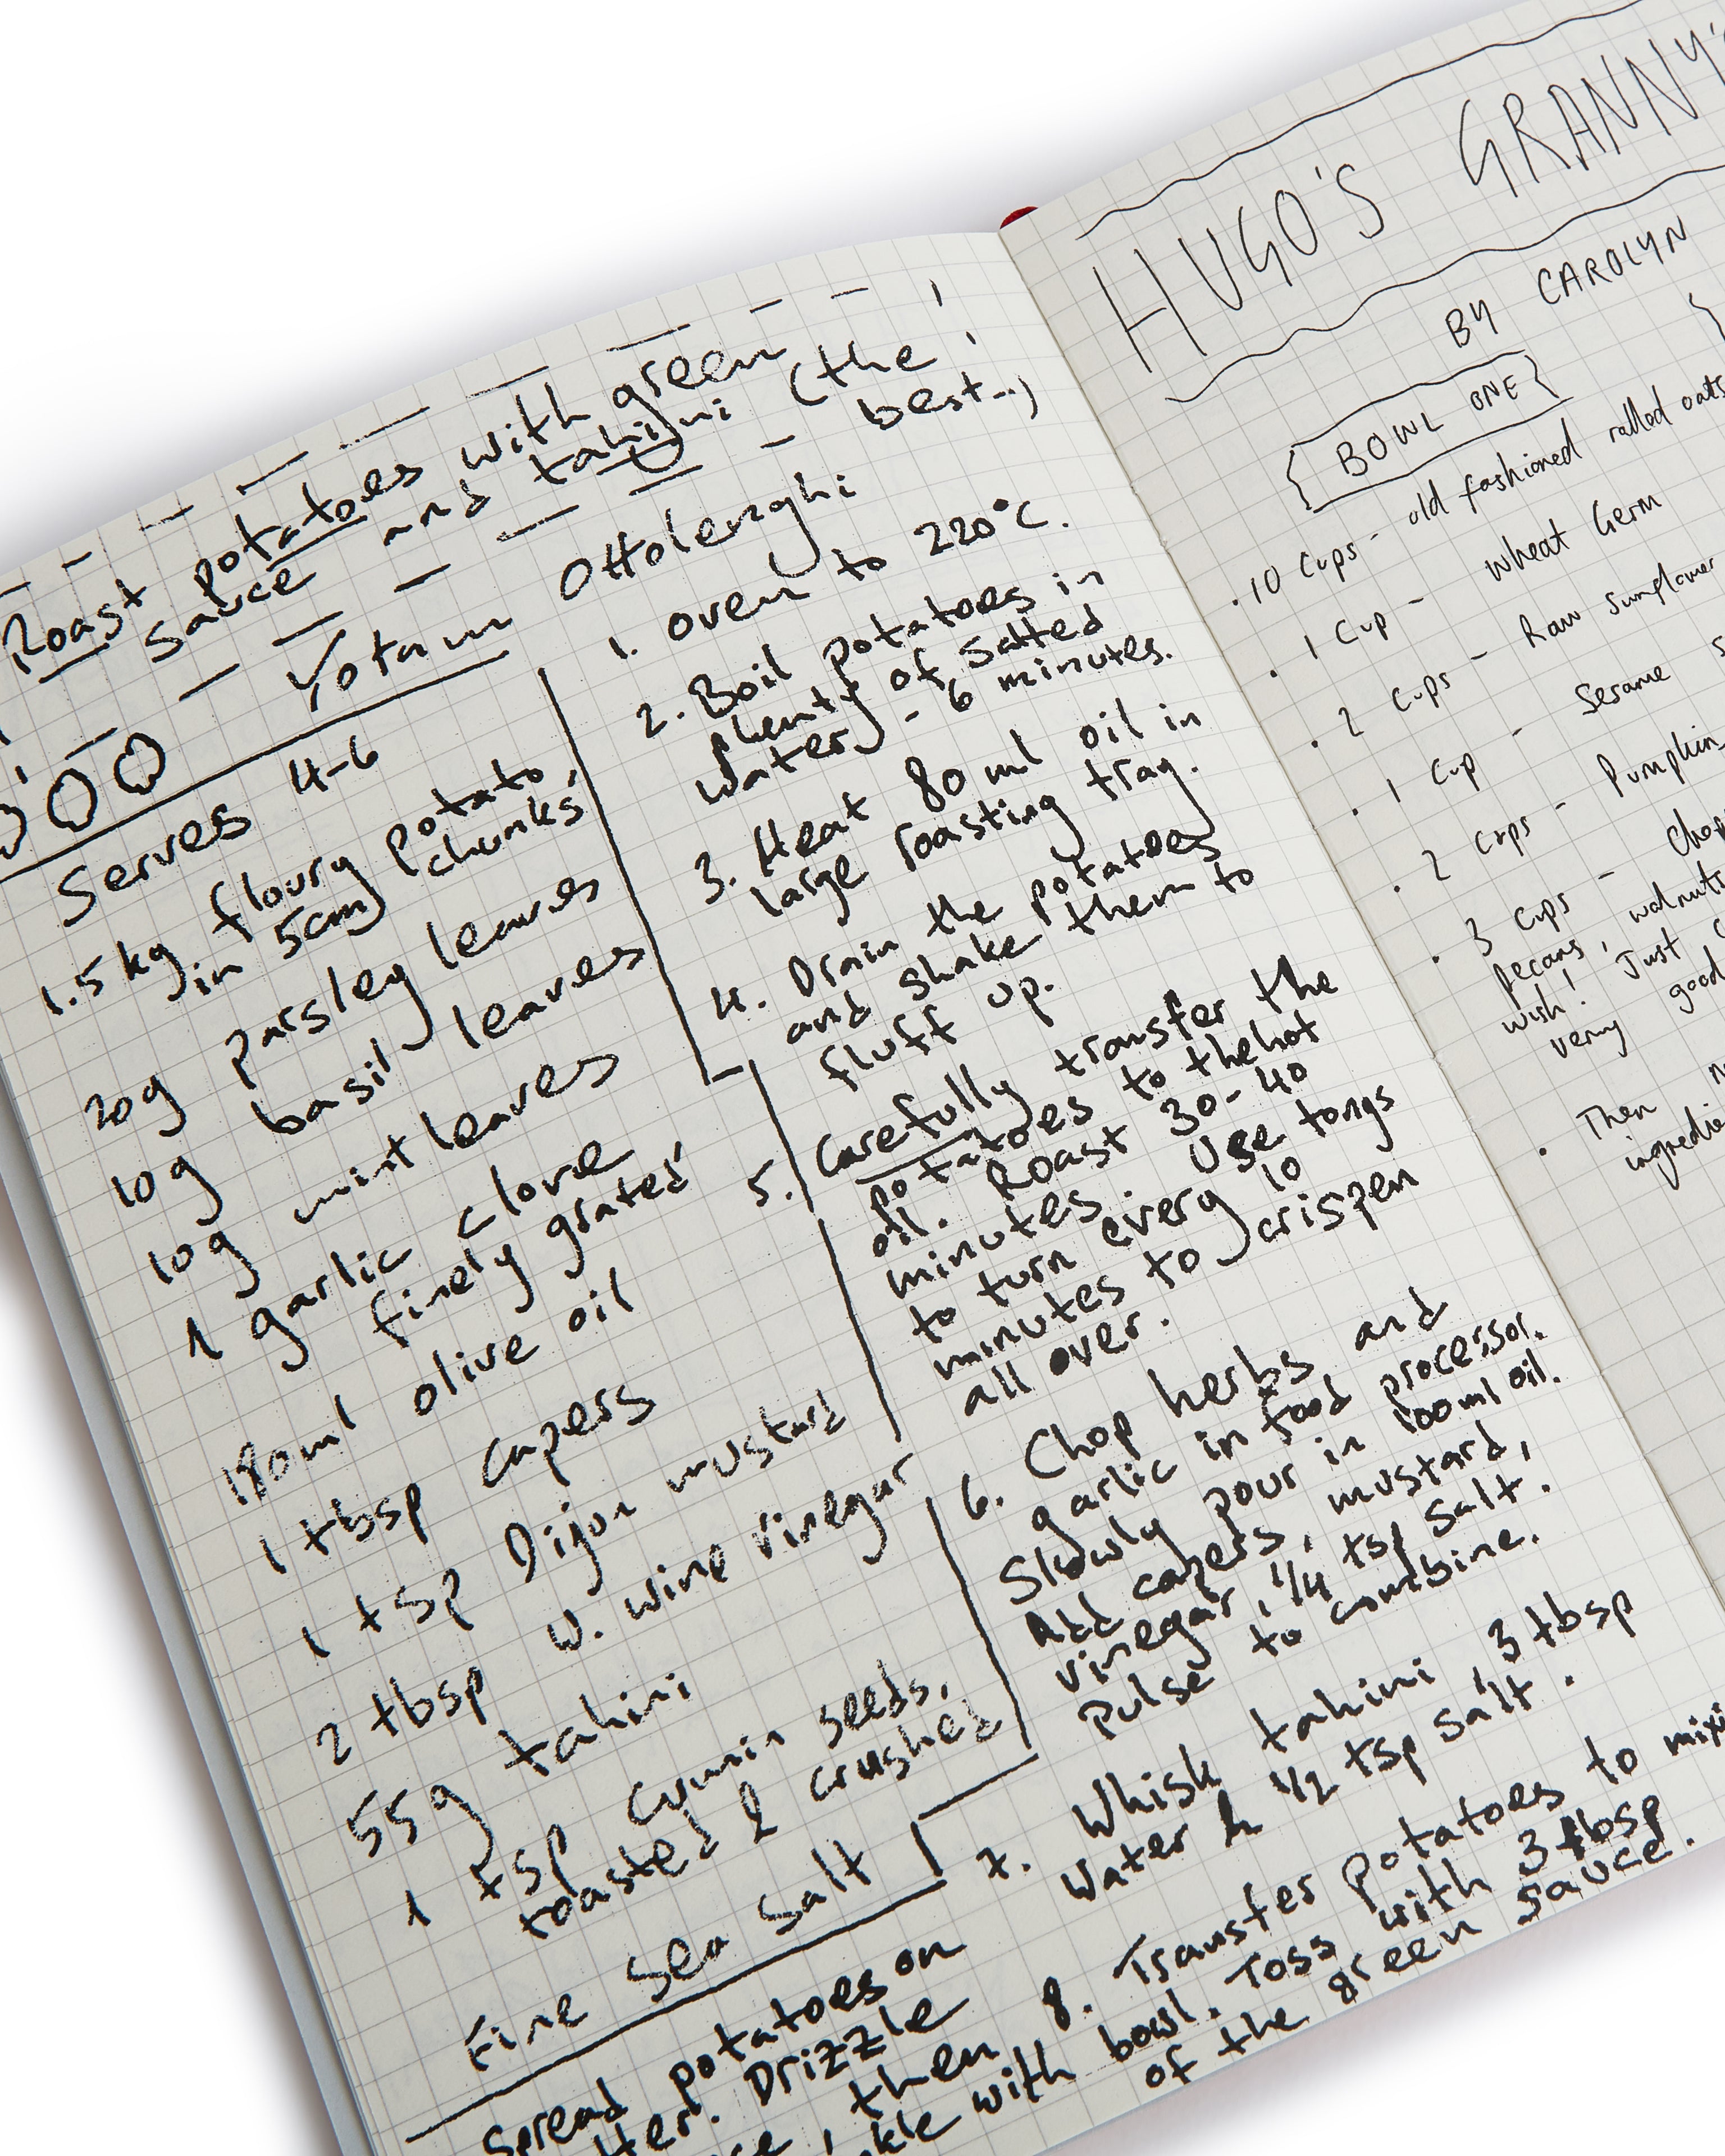 Roast potatoes with green
sauce and tahini (the
best...)
Yotam Ottolenghi
Serves 4-6
1.5 kg floury potato,
in 5cm chunks
20g parsley leaves
10g basil leaves
10g mint leaves
1 garlic clove
finely grated
180ml olive oil
1 tbsp capers
1 tsp Dijon mustard
2 tbsp w. wine vinegar
55g tahini
1 tsp cumin seeds,
toasted & crushed
Fine sea salt
1. oven to 220°C.
2. Boil potatoes in
plenty of salted
water - 6 minutes.
3. Heat 80 ml oil in
large roasting tray.
4. Drain the potatoes
and shake them to
fluff up.
5. Carefully transfer the
potatoes to the hot
oil. Roast 30-40
minutes. Use tongs
to turn every 10
minutes to crispen
all over.
6. Chop herbs and
garlic in food processor.
Slowly pour in 100ml oil.
Add capers, mustard,
vinegar, 1/4 tsp salt.
Pulse to combine.
7. Whisk tahini, 3 tbsp
water & 1/2 tsp salt.
8. Transfer potatoes to
bowl. Toss with 3 tbsp
of the green sauce.
Spread potatoes on
Drizzle
then
with
HUGO'S GRANNY'S
BY CAROLYN
BOWL ONE
· 10 Cups - old fashioned rolled oats
· 1 Cup - Wheat Germ
· 2 Cups - Raw sunflower
· 1 Cup - Sesame
· 2 Cups - Pumpkin
· 3 Cups -
pecans, walnuts
wish! Just
very good
· Then